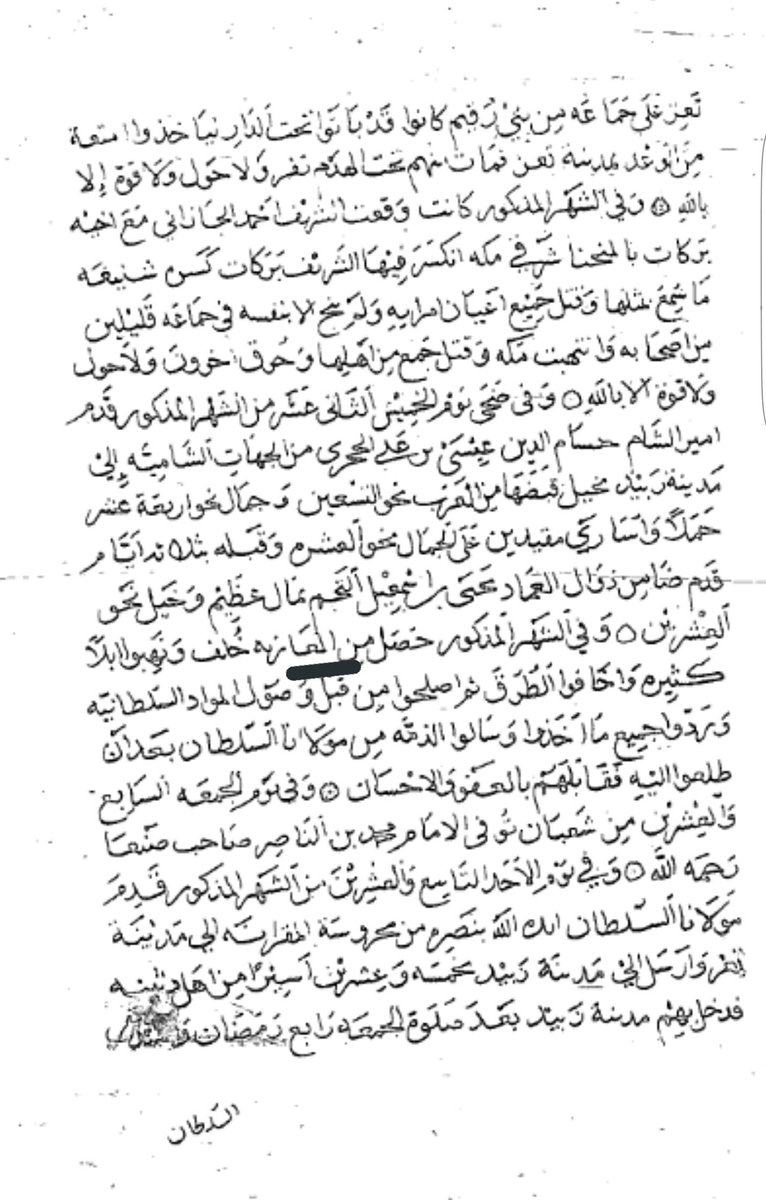 تعز على جماعة من بني رقيم كانوا قد باتوا تحت الدار نيا خذوا امتعة
من الوعد بمدينة تعز فمات منهم تحت الهدم نفر ولا حول ولا قوة إلا
بالله وفي الشهر المذكور كانت وقعت الشريف احمد الجازاني مع اخيه
بركات بالمنحنا شرقي مكه انكسر فيها الشريف بركات كسره شنيعه
ما سمع بمثلها وقتل جميع اعيان امرايه ولم ينج الا بنفسه في جماعه قليلين
من اصحابه وانتهبت مكه وقتل جمع من اهلها وحرق اخرون ولا حول
ولا قوة الا بالله وفي ضحى يوم الخميس الثاني عشر من الشهر المذكور قدم
امير الشام حسام الدين عيسى بن علي الحجري من الجهات الشاميه إلى
مدينة زبيد بخيل قبضها من العرب نحو التسعين وجمال نحو اربعة عشر
حملا واسارى مقيدين على الجمال نحو العشره وقبله بثلاثه ايام
قدم ضامن ذوال العماد يحيى بن اسمعيل النجم بمال عظيم وخيل نحو
العشرين وفي الشهر المذكور حصل من المعازبه خلف ونهبوا ابلا
كثيره واخافوا الطرق ثم اصلحوا من قبل وصول المواد السلطانيه
وردوا جميع ما اخذوا وسالوا الذمه من مولانا السلطان بعد ان
طلعوا اليه فقابلهم بالعفو والاحسان وفي يوم الجمعه السابع
والعشرين من شعبان توفي الامام محمد بن الناصر صاحب صنعا
رحمه الله وفي يوم الاحد التاسع والعشرين من الشهر المذكور قدم
مولانا السلطان ايده الله بنصره من محروسة المقرانه الى مدينة
تعز وارسل الى مدينة زبيد بخمسه وعشرين اسيرا من اهل
فدخل بهم مدينة زبيد بعد صلوة الجمعه رابع رمضان
السلطان